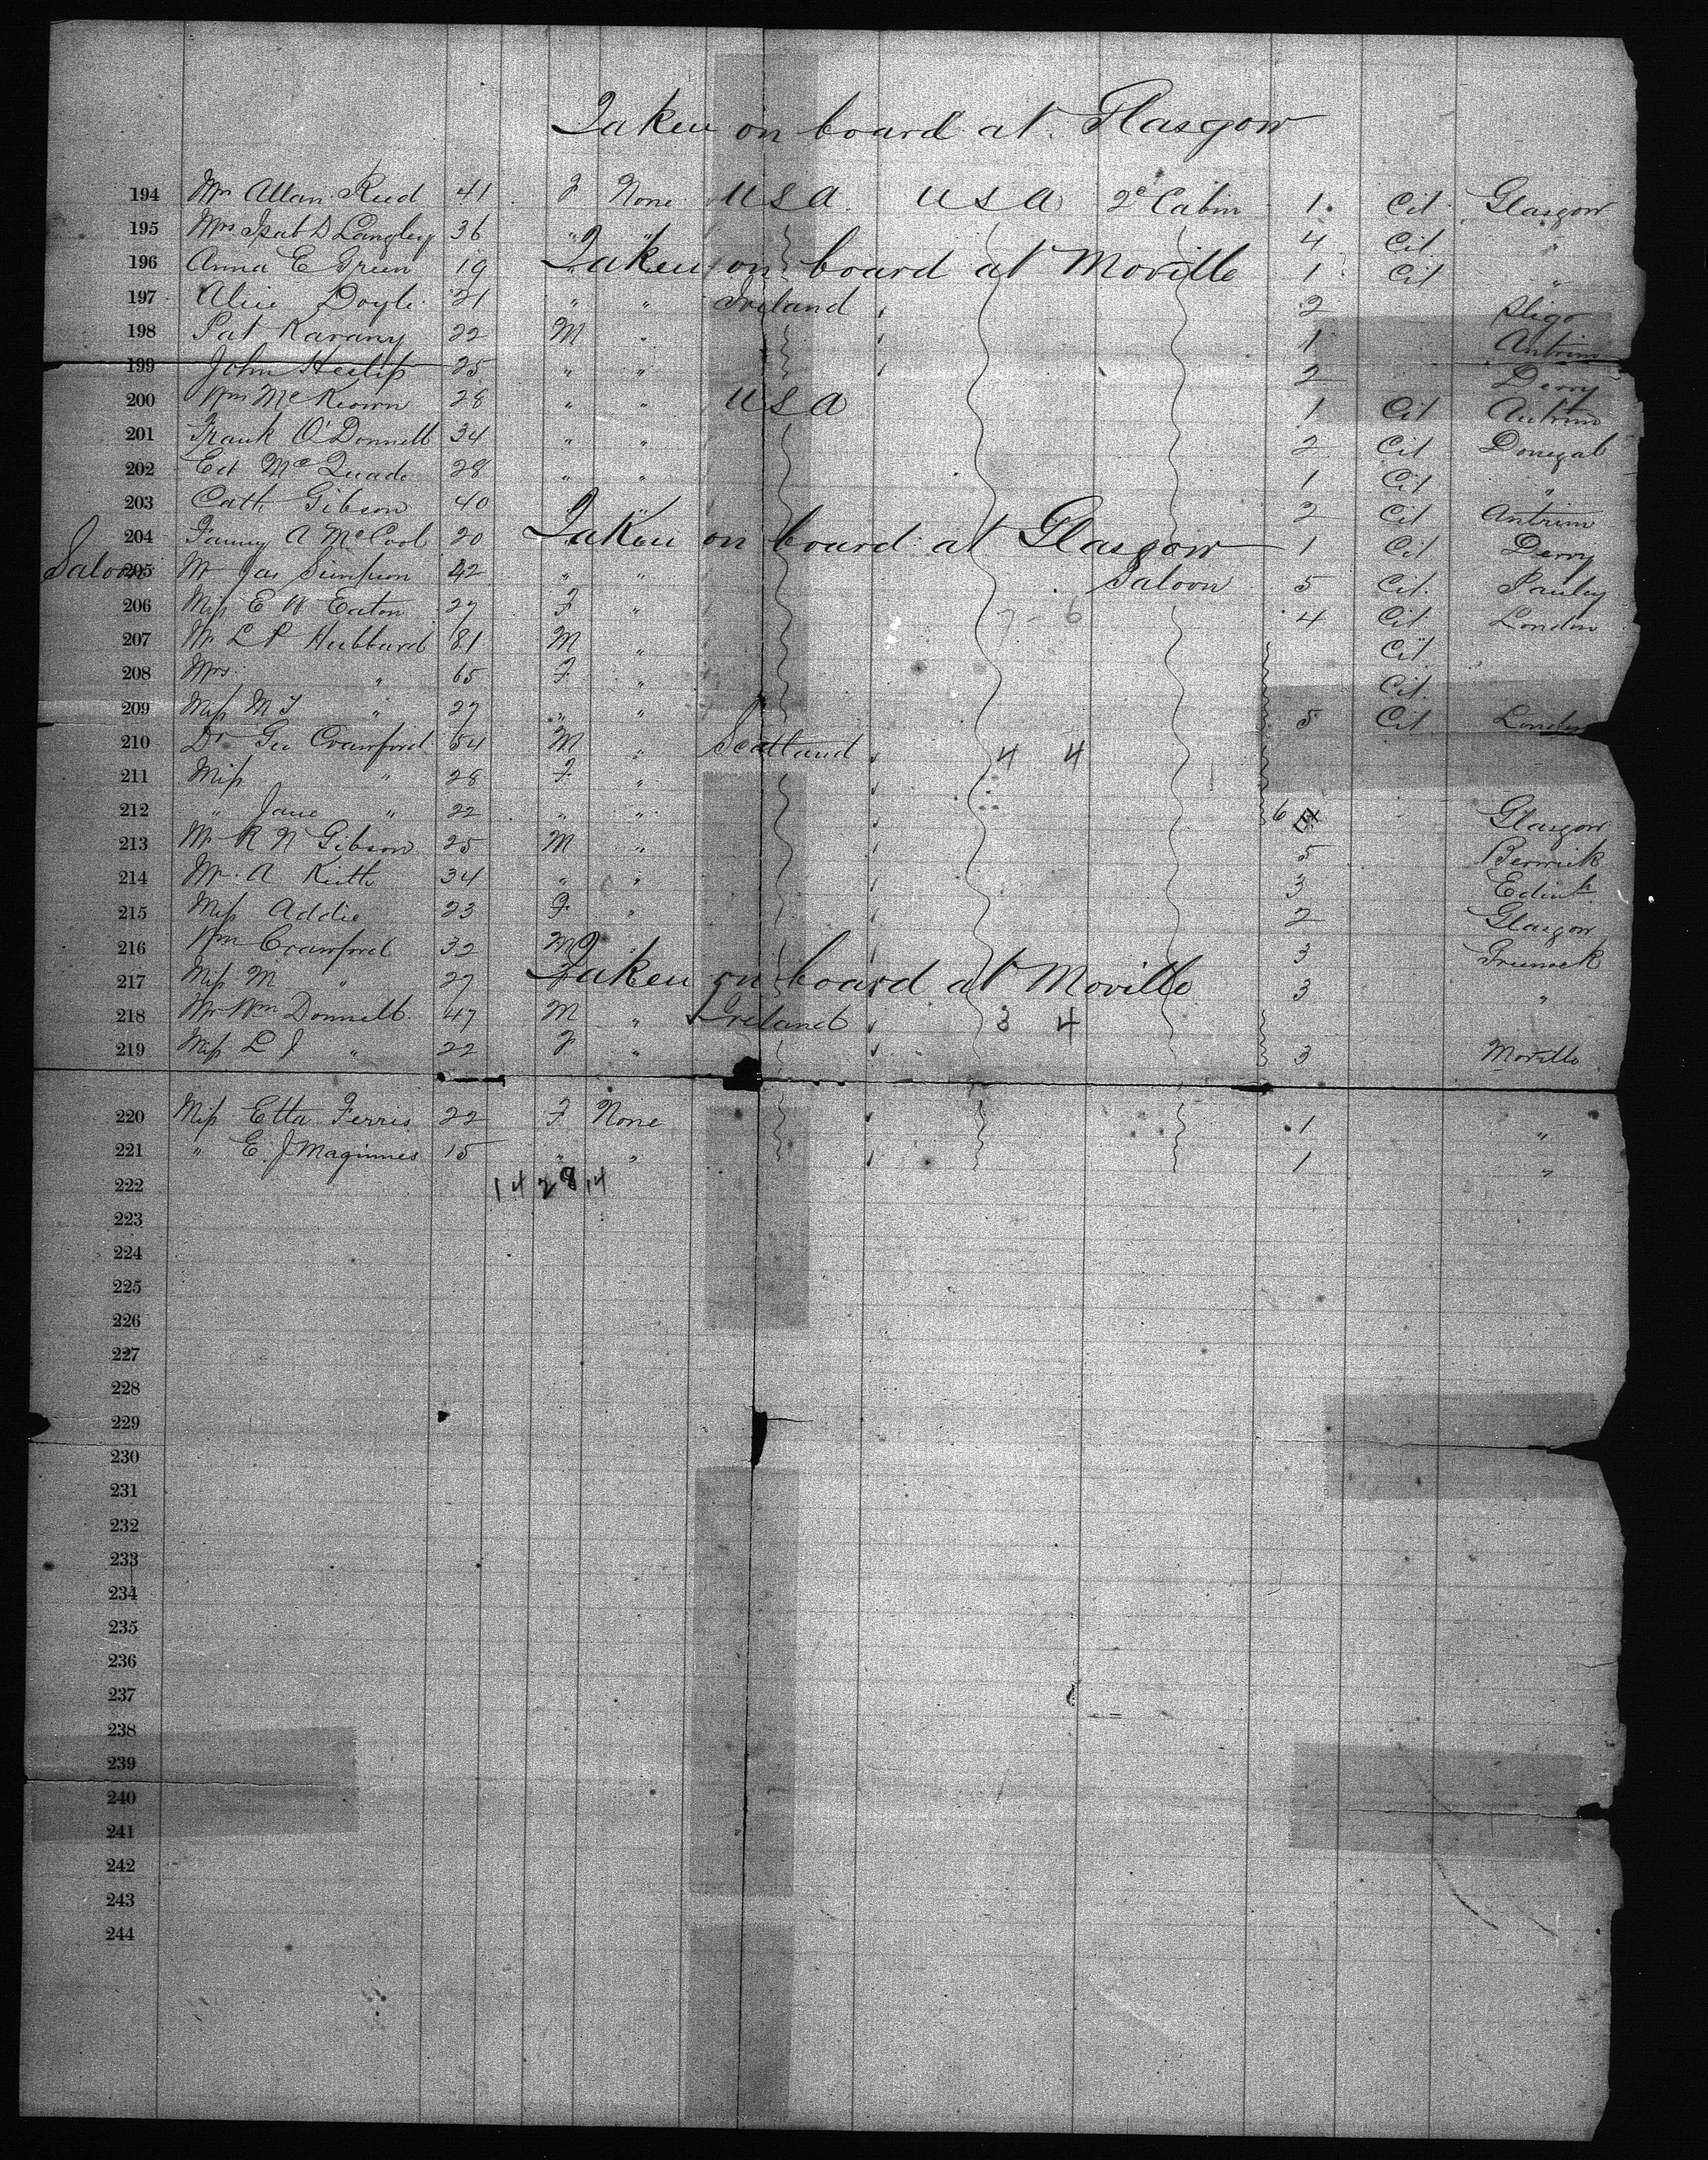 Taken on board at Glasgow
194 Mrs Allan Reid 41 F None USA USA 2d Cabin 1 Cit Glasgow
195 Mrs Isab D Langley 36 " " 4 Cit "
Taken on board at Moville
196 Anna E Green 19 " " 1 Cit "
197 Alice Doyle 21 " " Ireland 2 Sligo
198 Pat Karany 22 M " 1 Antrim
199 John Heslip 25 " " 2 Derry
200 Wm McKeown 28 " " USA 1 Cit Antrim
201 Frank O'Donnell 34 " " 2 Cit Donegal
202 Ed McQuade 28 " " 1 Cit "
203 Cath Gibson 40 2 Cit Antrim
Taken on board at Glasgow
204 Fanny A McCool 20 1 Cit Derry
Saloon 205 Mr Jas Simpson 42 " " Saloon 5 Cit
206 Miss E W Eaton 27 F " 7 6 4 Cit London
207 Mr L P Hubbard 81 M " Cit
208 Mrs " 65 F " Cit
209 Miss M T " 27 " " 5 Cit London
210 Dr Geo Crawford 54 M " Scotland 4 4
211 Miss " 28 F "
212 " Jane " 22 " " 6 Glasgow
213 Mr R N Gibson 25 M " 5 Berwick
214 Mr A Keith 34 " " 3 Edinh
215 Miss Addie 23 F " 2 Glasgow
216 Wm Crawford 32 M 3 Greenock
Taken on board at Moville
217 Miss M " 27 F 3 "
218 Mr Wm Donnell 47 M " Ireland 3 4
219 Miss L J " 22 F " 3 Moville
220 Miss Etta Ferris 22 F None 1 "
221 " E. J Maginnes 15 " " 1 "
222 14 28 14
223
224
225
226
227
228
229
230
231
232
233
234
235
236
237
238
239
240
241
242
243
244